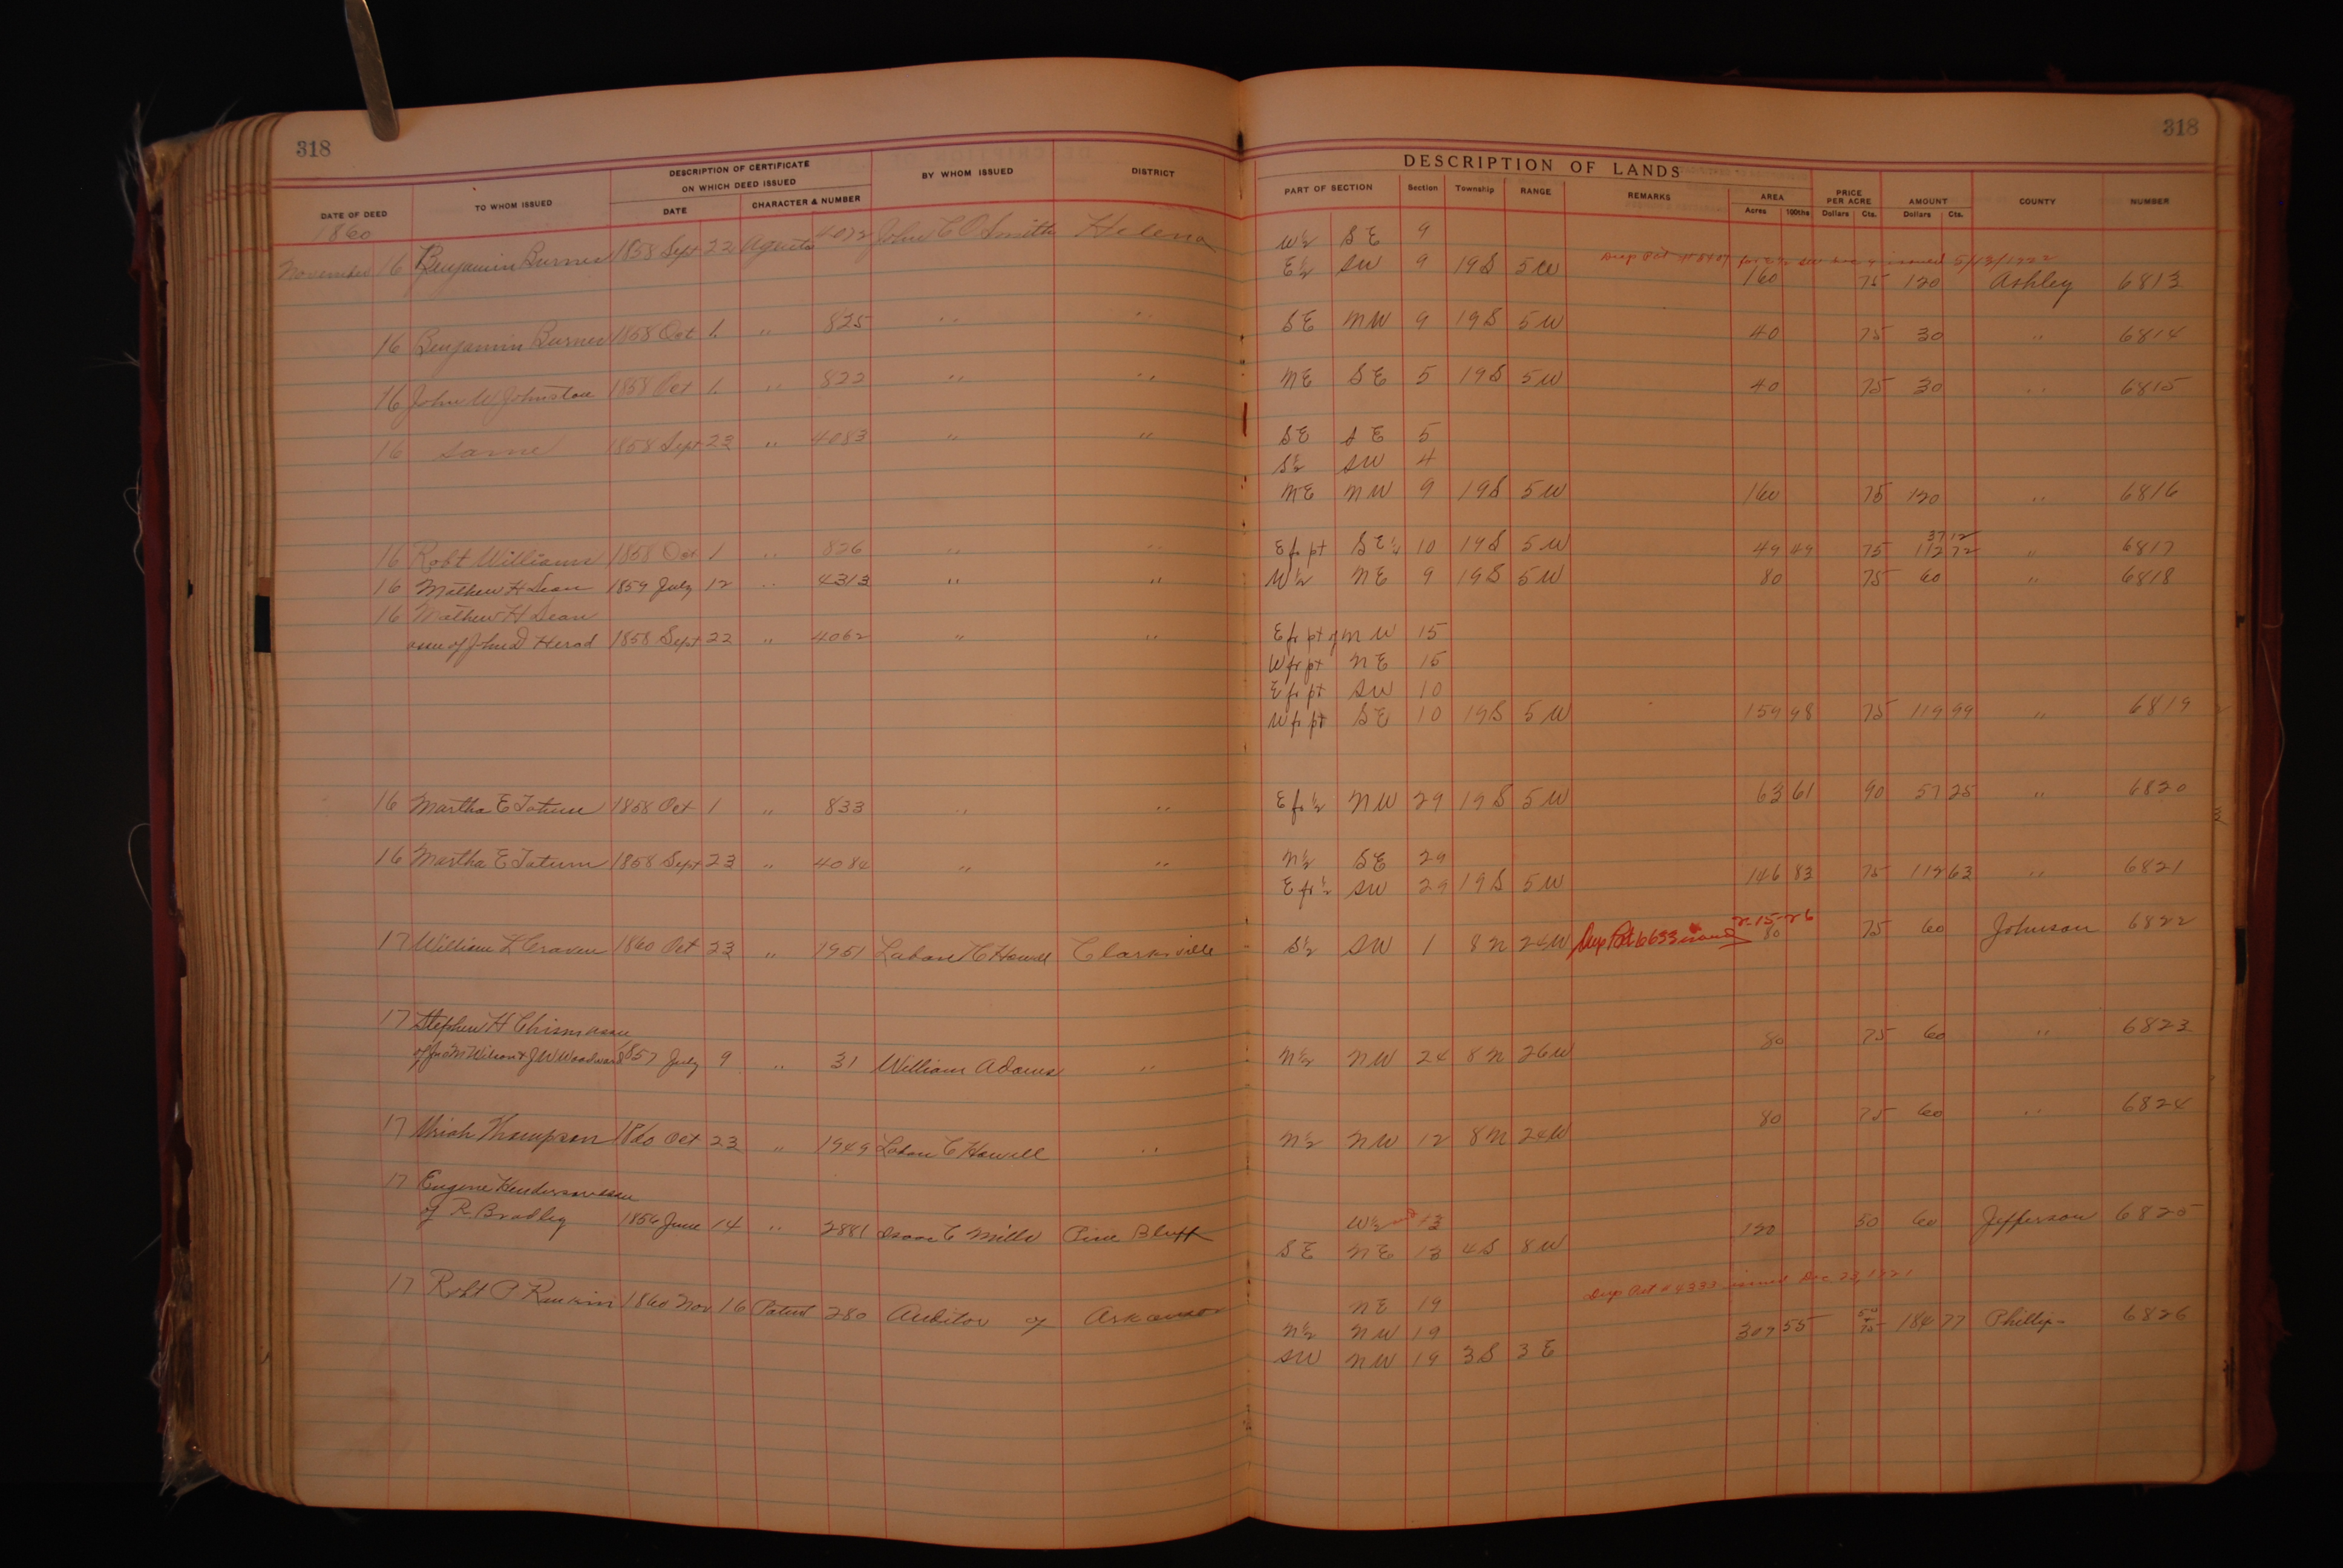 318
318
DESCRIPTION OF LANDS
DATE OF DEED TO WHOM ISSUED DESCRIPTION OF CERTIFICATE ON WHICH DEED ISSUED BY WHOM ISSUED DISTRICT PART OF SECTION Section Township RANGE REMARKS AREA PRICE PER ACRE AMOUNT COUNTY NUMBER
DATE CHARACTER & NUMBER Acres 100ths Dollars Cts. Dollars Cts.
1860
W½ SE 9
November 16 Benjamin Burnes 1858 Sept 22 Agents 4072 John C O Smith Helena E½ SW 9 19S 5W issued 5/13/1922 160 75 120 Ashley 6813
16 Benjamin Burnes 1858 Oct 1. " 825 " " SE NW 9 19S 5W 40 75 30 " 6814
16 John W Johnston 1858 Oct 1. " 822 " " NE SE 5 19S 5W 40 75 30 " 6815
16 Same 1858 Sept 23 " 4083 " " SE SE 5
S½ SW 4
NE NW 9 19S 5W 160 75 120 " 6816
37 12
16 Robt Williams 1858 Oct 1 " 826 " " E fr pt SE¼ 10 19S 5W 49 49 75 112 72 " 6817
16 Mathew H Dean 1859 July 12 " 4313 " " W½ NE 9 19S 5W 80 75 60 " 6818
16 Mathew H Dean
assee of John D Herod 1858 Sept 22 " 4062 " " E fr pt of NW 15
W fr pt NE 15
E fr pt SW 10
W fr pt SE 10 19S 5W 159 98 75 119 99 " 6819
16 Martha E Tatum 1858 Oct 1 " 833 " " E fr ½ NW 29 19S 5W 63 61 90 57 25 " 6820
16 Martha E Tatum 1858 Sept 23 " 4084 " " N½ SE 29
E fr ½ SW 29 19S 5W 146 83 75 63 " 6821
2-15-26
17 William L Craven 1860 Oct 23 " 1951 Laban C Howell Clarksville S½ SW 1 8N 24W Dup Pat 6633 issued 80 75 60 Johnson 6822
17 Stephen H Chism assee
of Jas M Wilson & J W Woodward 1857 July 9 " 31 William Adams " N½ NW 24 8N 26W 80 75 60 " 6823
17 Uriah Thompson 1860 Oct 23 " 1949 Laban C Howell " N½ NW 12 8N 24W 80 75 60 " 6824
17 Eugene Henderson assee
of R. Bradley 1856 June 14 " 2881 Isaac C Mills Pine Bluff W½ 13
SE NE 13 4S 8W 120 50 60 Jefferson 6825
Dup Pat issued Dec 23, 1921
17 Robt P Rankin 1860 Nov 16 Patent 280 Auditor of Arkansas NE 19
N½ NW 19 307 55 50 75 184 77 Phillips 6826
SW NW 19 3S 3E